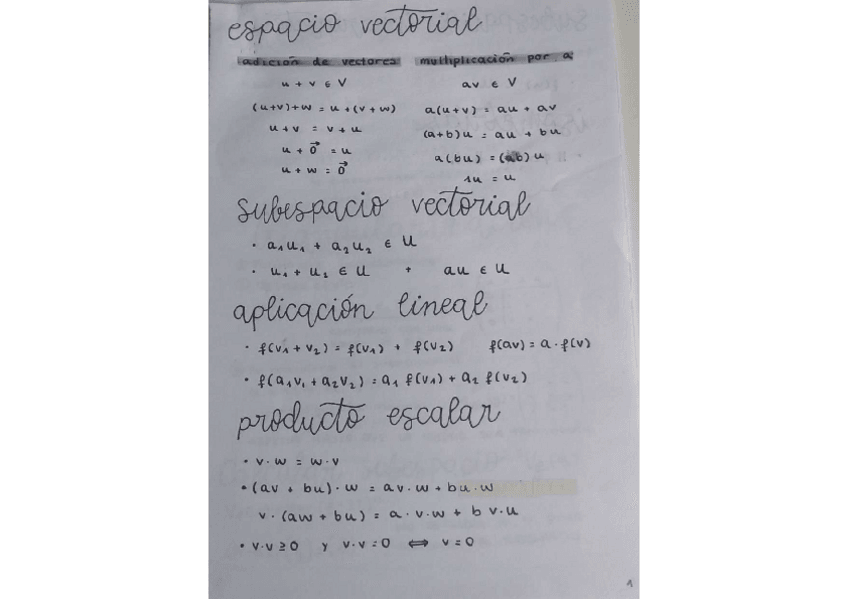 espacio vectorial
adición de vectores
u + v ∈ V
(u+v)+w = u+(v+w)
u+v = v+u
u + 0⃗ = u
u + w = 0⃗
multiplicación por a
av ∈ V
a(u+v) = au + av
(a+b)u = au + bu
a(bu) = (ab)u
1u = u
subespacio vectorial
· a₁u₁ + a₂u₂ ∈ U
· u₁ + u₂ ∈ U + au ∈ U
aplicación lineal
· f(v₁ + v₂) = f(v₁) + f(v₂) f(av) = a · f(v)
· f(a₁v₁ + a₂v₂) = a₁ f(v₁) + a₂ f(v₂)
producto escalar
· v·w = w·v
· (av + bu)·w = av·w + bu·w
v·(aw + bu) = a·v·w + b v·u
· v·v ≥ 0 y v·v = 0 ⟺ v = 0
1